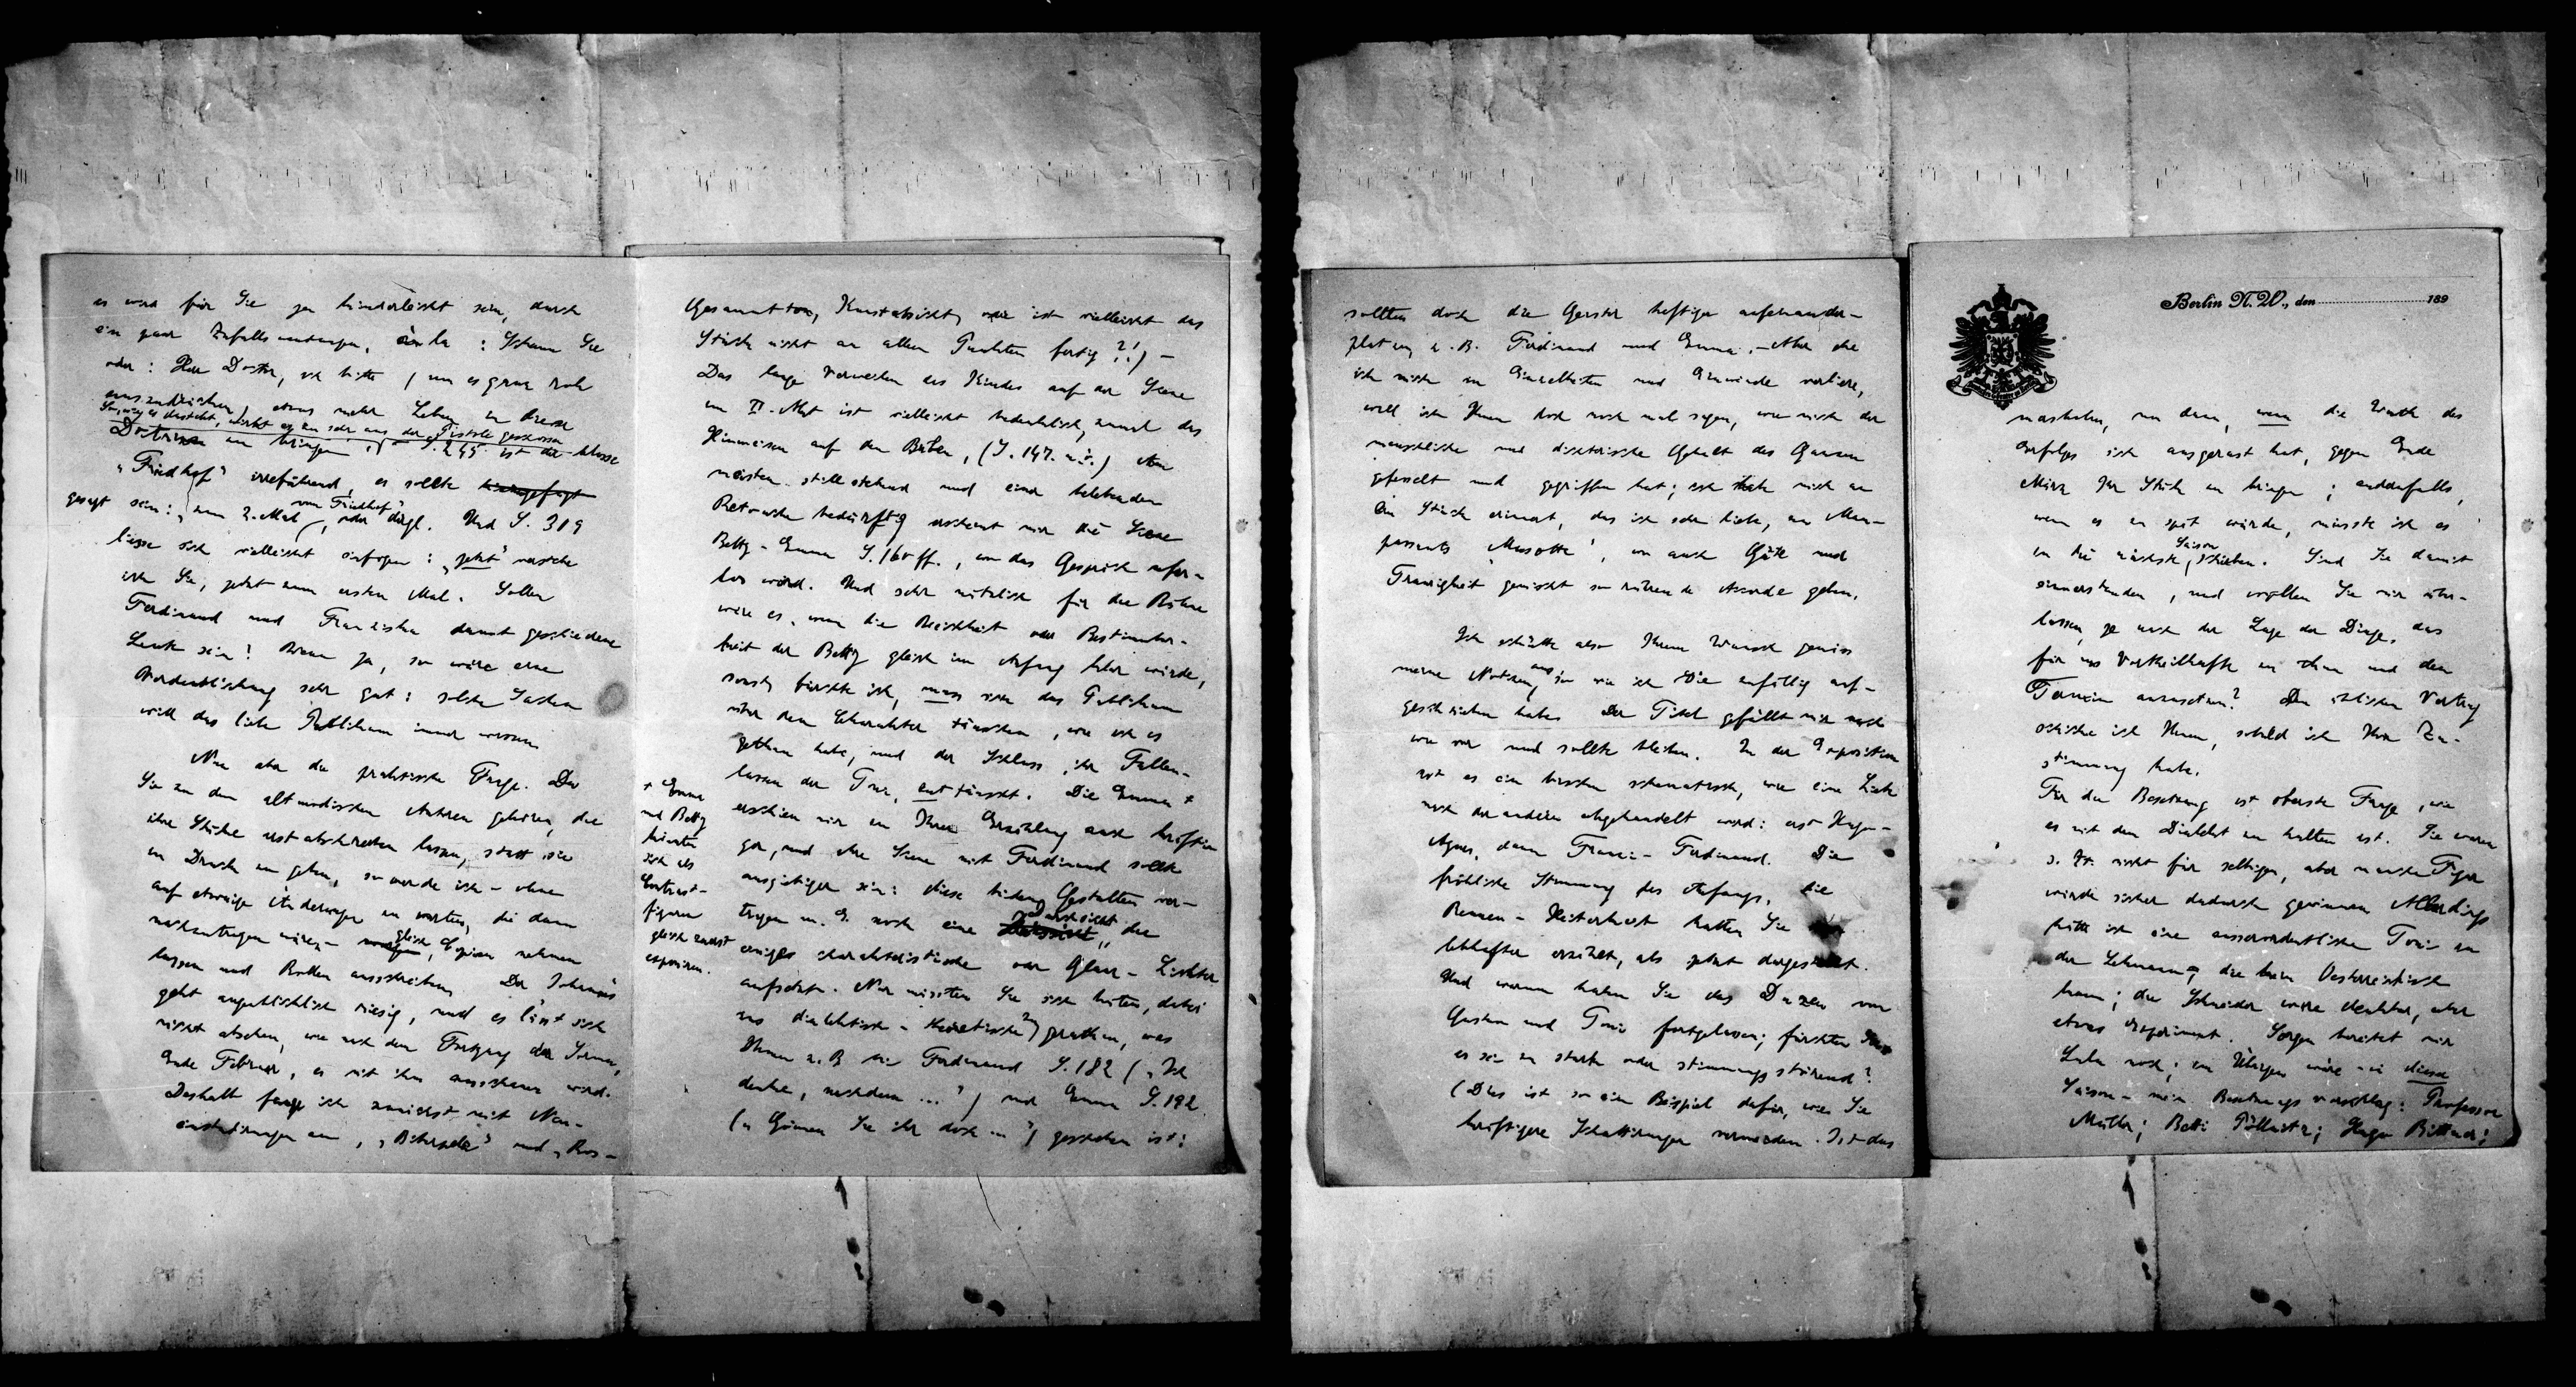 es wird für Sie ja kinderleicht sein, durch
ein paar Zufallswendungen, à la : Schaun Sie
oder : Herr Doctor, ich bitte / um es ganz roh
auszudrücken / etwas mehr Leben in diese
So, wie es dasteht, wirkt es zu sehr aus der Pistole geschossen
Doctrinen zu bringen. S. 245 ist der blosse
„Friedhof“ irreführend, es sollte
gesagt sein: „zum 2. Mal vom Friedhof“, oder dergl. Und S. 319
liesse sich vielleicht einfügen : „jetzt“ verstehe
ich Sie, jetzt zum ersten Mal. Sollen
Ferdinand und Franziska damit geschiedene
Leute sein? Wenn ja, so wäre eine
Verdeutlichung sehr gut : solche Sachen
will das liebe Publikum immer wissen.
Nun aber die praktische Frage. Da
Sie zu den altmodischen Autoren gehören, die
ihre Stücke erst abschreiben lassen, statt sie
in Druck zu geben, so werde ich – ohne
auf etwaige Änderungen zu warten, die dann
nachzutragen wären – gleich Copien nehmen
lassen und Rollen ausschreiben. Der Johannes
geht augenblicklich riesig, und es lässt sich
nicht absehen, wie nach dem Fortgang der Sorma,
Ende Februar, es mit ihm ausschauen wird.
Deshalb fange ich zunächst mit Neu-
einstudirungen an, „Biberpelz“ und „Ros-
Gesammtton, Kunstabsicht, oder ist vielleicht das
Stück nicht an allen Punkten fertig?!) –
Das lange Verweilen des Kindes auf der Scene
im II. Akt ist vielleicht bedenklich, zumal das
Hinweisen auf den Buben, (S. 147. u. ö.) Am
meisten stillstehend und einer belebenden
Retouche bedürftig erscheint mir die Scene
Betty – Emma S. 160 ff., wo das Gespräch ufer-
los wird. Und sehr nützlich für die Bühne
wäre es, wenn die Weichheit oder Bestimmbar-
keit der Betty gleich im Anfang klar würde,
sonst, fürchte ich, muss sich das Publikum
über den Charakter täuschen, wie ich es
gethan habe, und der Schluss, ihr Fallen-
lassen der Toni, enttäuscht. Die Emma +
erschien mir in Ihrer Erzählung auch kräftiger
gar, und ihre Scene mit Ferdinand sollte
ausgiebiger sein : diese beiden Gestalten ver-
tragen m. E. noch eine Durchsicht, die
einiges charakteristische oder Glanz-Lichter
aufsetzt. Nur müssten Sie sich hüten, dabei
ins dialektisch-theoretische zu gerathen, was
Ihnen z. B. bei Ferdinand S. 182 („Ich
denke, nachdem ...“) und Emma S. 192
(„Gönnen Sie ihr doch ...“) geschehen ist :
+ Emma
und Betty
könnten
sich als
Contrast-
figuren
gleich zuerst
exponiren.
sollten doch die Geister heftiger aufeinander-
platzen, z. B. Ferdinand und Emma. – Aber ehe
ich mich in Einzelheiten und Einwände verliere,
will ich Ihnen doch noch mal sagen, wie mich der
menschliche und dichterische Gehalt des Ganzen
gefesselt und gegriffen hat; ich habe mich an
ein Stück erinnert, das ich sehr liebe, an Mau-
passants „Musotte“, wo auch Güte und
Traurigkeit gemischt so rührende Accorde geben.
Ich schütte also Ihrem Wunsch gemäss
meine Notizen aus, so wie ich sie zufällig auf-
geschrieben habe. Der Titel gefällt mir nach
wie vor und sollte bleiben. In der Exposition
ist es ein bisschen schematisch, wie eine Liebe
nach der anderen abgehandelt wird : erst Hugo-
Agnes, dann Franzi-Ferdinand. Die
fröhliche Stimmung des Anfangs, die
Rennen-Heiterkeit hatten Sie
lebhafter erzählt, als jetzt dargestellt.
Und warum haben Sie das Duzen von
Gustav und Toni fortgelassen; fürchten Sie
es sei zu stark oder stimmungsstörend?
(Dies ist so ein Beispiel dafür, wie Sie
kräftigere Schattirungen vermeiden. Ist das
Berlin N.W., den 189
mersholm, um dann, wenn die Wuth des
Erfolges sich ausgerast hat, gegen Ende
März Ihr Stück zu bringen; andernfalls,
wenn es zu spät würde, müsste ich es
in die nächste Saison schieben. Sind Sie damit
einverstanden, und wollen Sie mir über-
lassen, je nach der Lage der Dinge, das
für uns Vortheilhafte zu thun und den
Termin anzusetzen? Den üblichen Vertrag
schicke ich Ihnen, sobald ich Ihre Zu-
stimmung habe.
Für die Besetzung ist oberste Frage, wie
es mit dem Dialekt zu halten ist. Sie waren
s. Zt. nicht für selbigen, aber manche Figur
würde sicher dadurch gewinnen. Allerdings
hätte ich eine ausserordentliche Toni an
der Lehmann, die kein Oesterreichisch
kann; die Schneider wäre denkbar, aber
etwas Experiment. Sorgen bereitet mir
noch; im Übrigen wäre – in dieser
Saison – mein Besetzungsvorschlag : Professor
Müller; Betti Pöllnitz; Hugo Rittner;